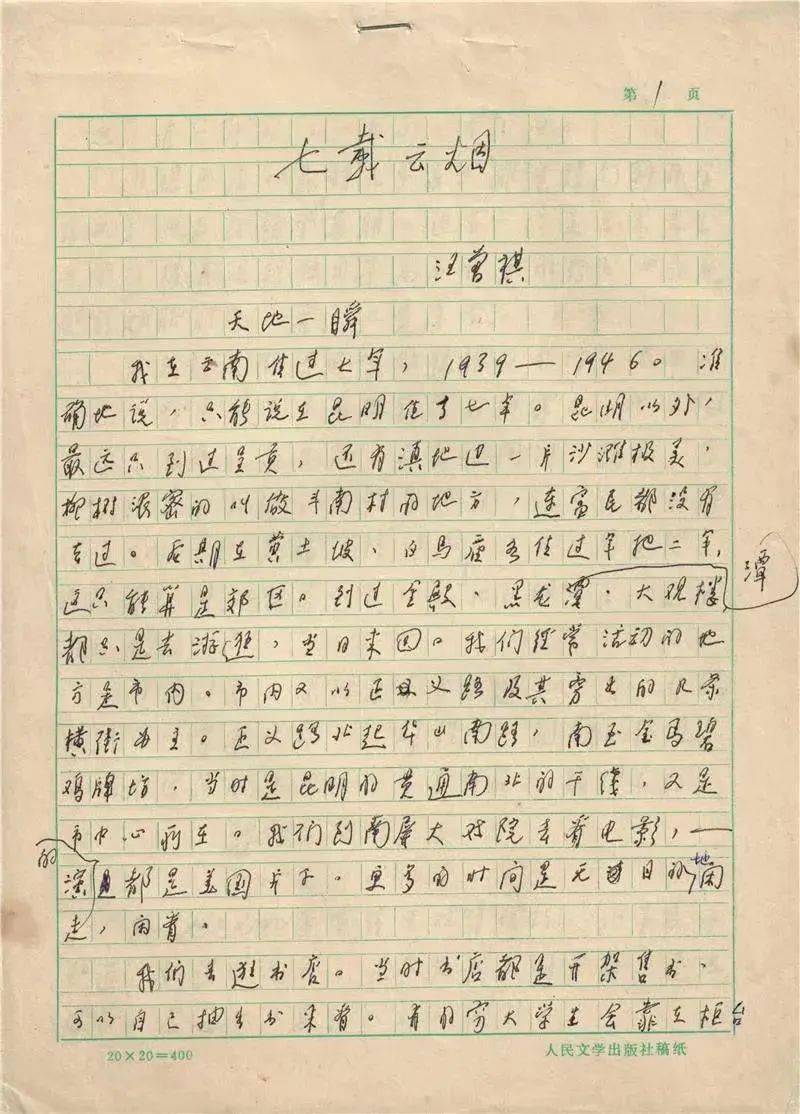 第1页
七载云烟
汪曾祺
天地一瞬
我在云南住过七年，1939—1946。准
确地说，只能说在昆明住了七年。昆明以外，
最远只到过呈贡，还有滇池边一片沙滩极美、
柳树浓密的叫做斗南村的地方，连富民都没有
去过。后期在黄土坡、白马庙各住过年把二年，
这只能算是郊区。到过金殿、黑龙潭、大观楼，
都只是去游逛，当日来回。我们经常活动的地
方是市内。市内又以正义路及其旁出的几条
横街为主。正义路北起华山南路，南至金马碧
鸡牌坊，当时是昆明的贯通南北的干线，又是
市中心所在。我们到南屏大戏院去看电影，——
演的都是美国片子。更多的时间是无目的地闲
走，闲看。
我们去逛书店。当时书店都是开架售书，
可以自己抽出书来看。有的穷大学生会靠在柜台
20×20=400
人民文学出版社稿纸